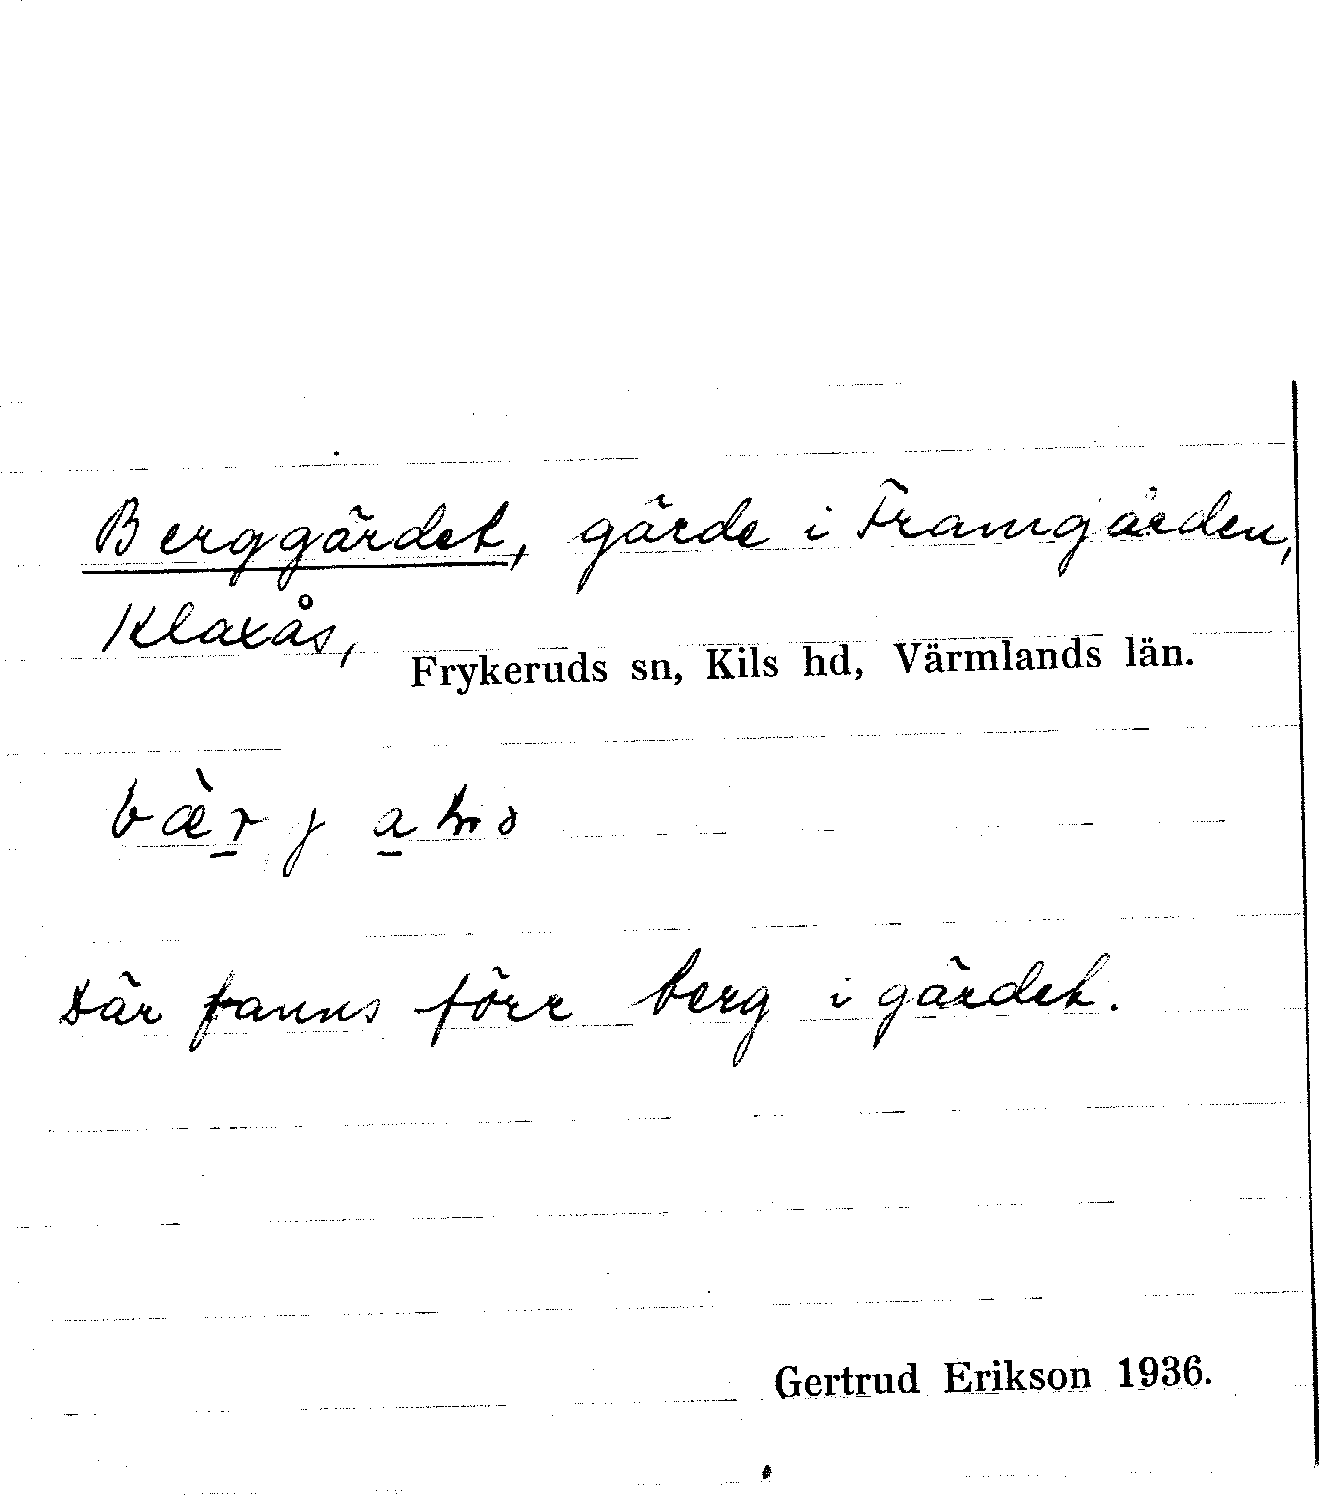 Berggärdet, gärde i Framgården,
Klaxås,
Frykeruds sn, Kils hd, Värmlands län.
Där fanns förr berg i gärdet.
Gertrud Erikson 1936.